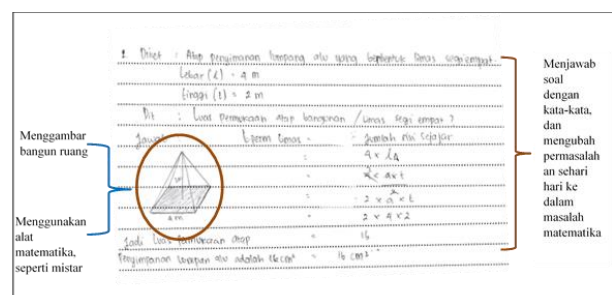 1 Diket : Atap penyimpanan lumpang alu yang berbentuk limas segi empat.
Lebar (l) = 4 m
tinggi (t) = 2 m
Dit : Luas permukaan atap bangunan / limas segi empat ?
Jawab
L perm limas = Jumlah sisi
= 4 x LΔ
=
= 2 x a x t
= 2 x 4 x 2
Jadi luas permukaan atap = 16
Penyimpanan lumpang alu adalah 16 cm² = 16 cm²
4 m
Menggambar
bangun ruang
Menggunakan
alat
matematika,
seperti mistar
Menjawab
soal
dengan
kata-kata,
dan
mengubah
permasalah
an sehari
hari ke
dalam
masalah
matematika